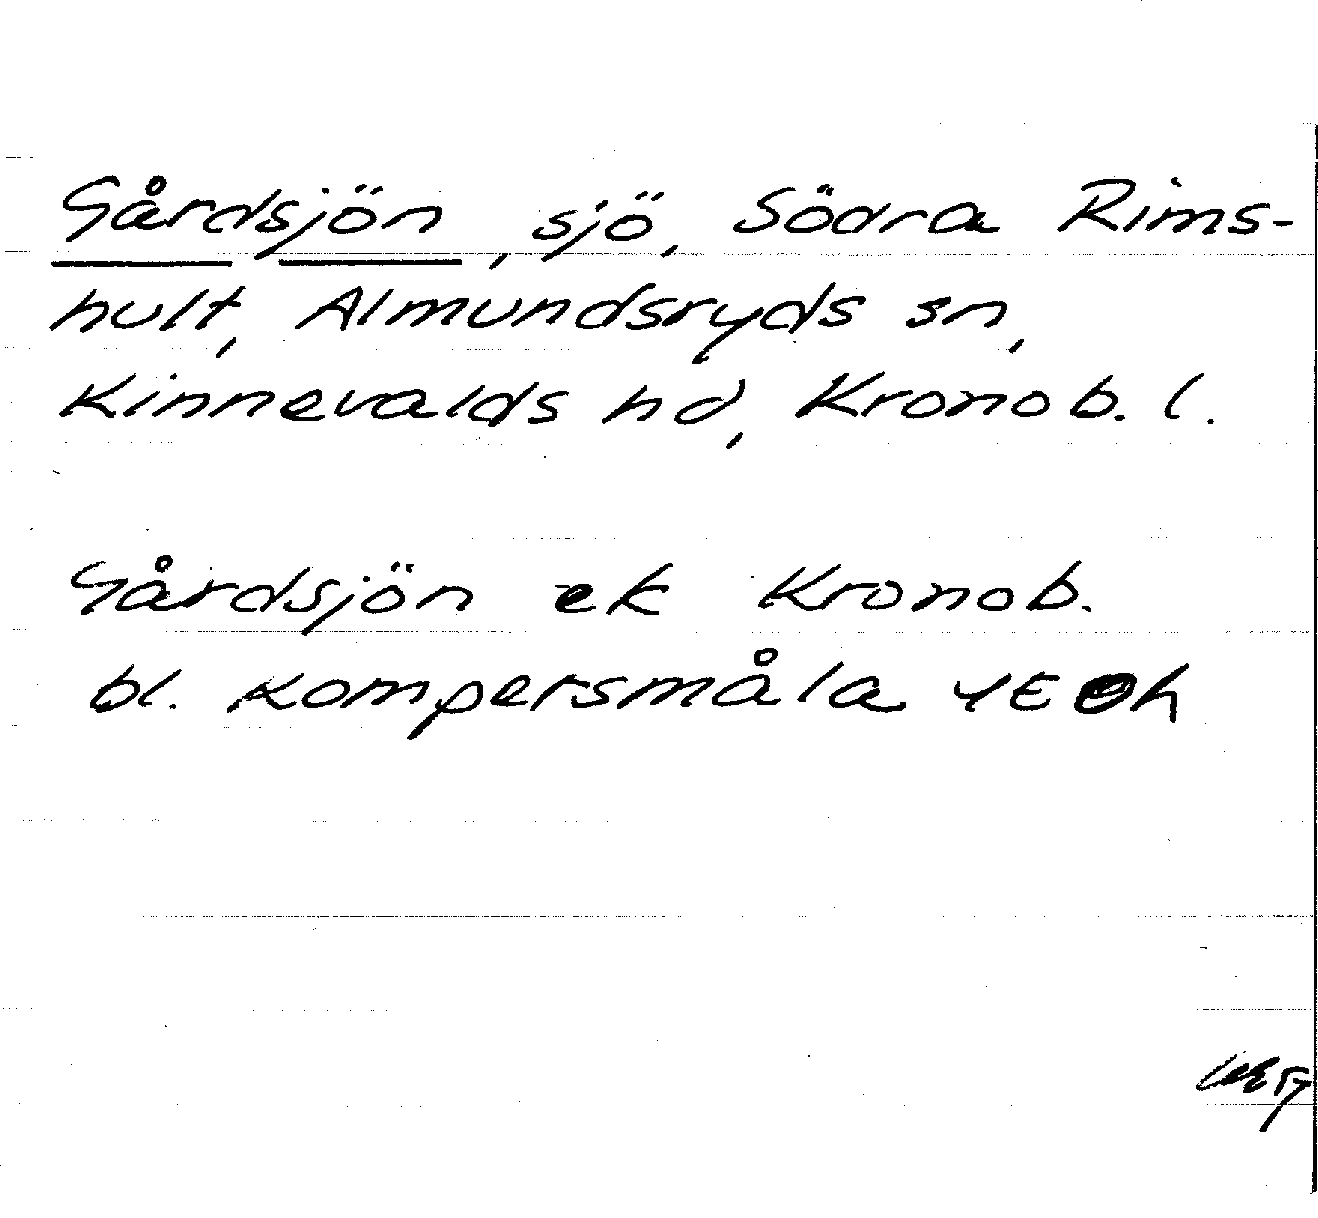 Gårdsjön, sjö, Södra Rims-
hult, Almundsryds sn,
Kinnevalds hd, Kronob. l.
Gårdsjön ek Kronob.
bl. Kompersmåla 4E